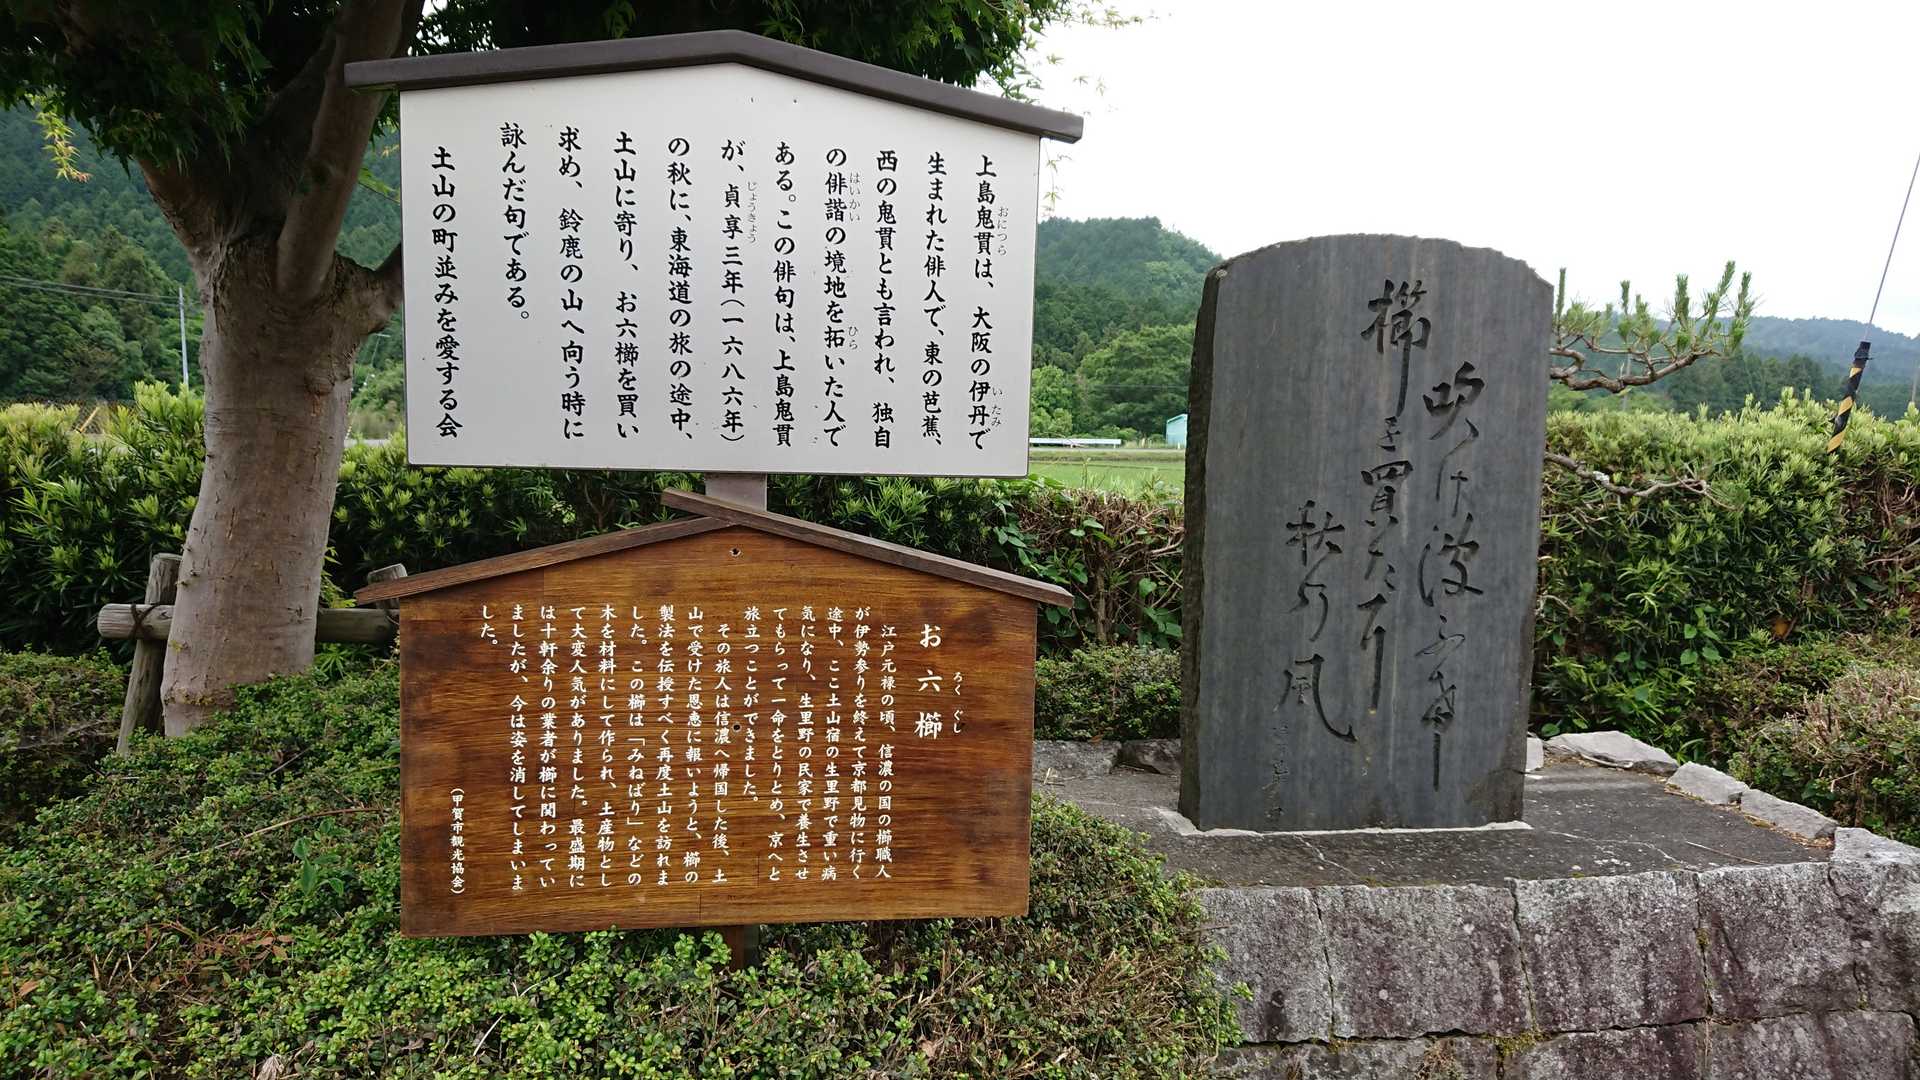 上島鬼貫は、大阪の伊丹で
おにつら
いたみ
生まれた俳人で、東の芭蕉、
西の鬼貫とも言われ、独自
の俳諧の境地を拓いた人で
はいかい
ひら
ある。この俳句は、上島鬼貫
が、貞享三年(一六八六年)
じょうきょう
の秋に、東海道の旅の途中、
土山に寄り、お六櫛を買い
求め、鈴鹿の山へ向う時に
詠んだ句である。
土山の町並みを愛する会
お六櫛
ろくぐし
江戸元禄の頃、信濃の国の櫛職人
が伊勢参りを終えて京都見物に行く
途中、ここ土山宿の生里野で重い病
気になり、生里野の民家で養生させ
てもらって一命をとりとめ、京へと
旅立つことができました。
その旅人は信濃へ帰国した後、土
山で受けた恩恵に報いようと、櫛の
製法を伝授すべく再度土山を訪れま
した。この櫛は「みねばり」などの
木を材料にして作られ、土産物とし
て大変人気がありました。最盛期に
は十軒余りの業者が櫛に関わってい
ましたが、今は姿を消してしまいま
した。
(甲賀市観光協会)
吹け波ふ
櫛を買たり
秋乃風